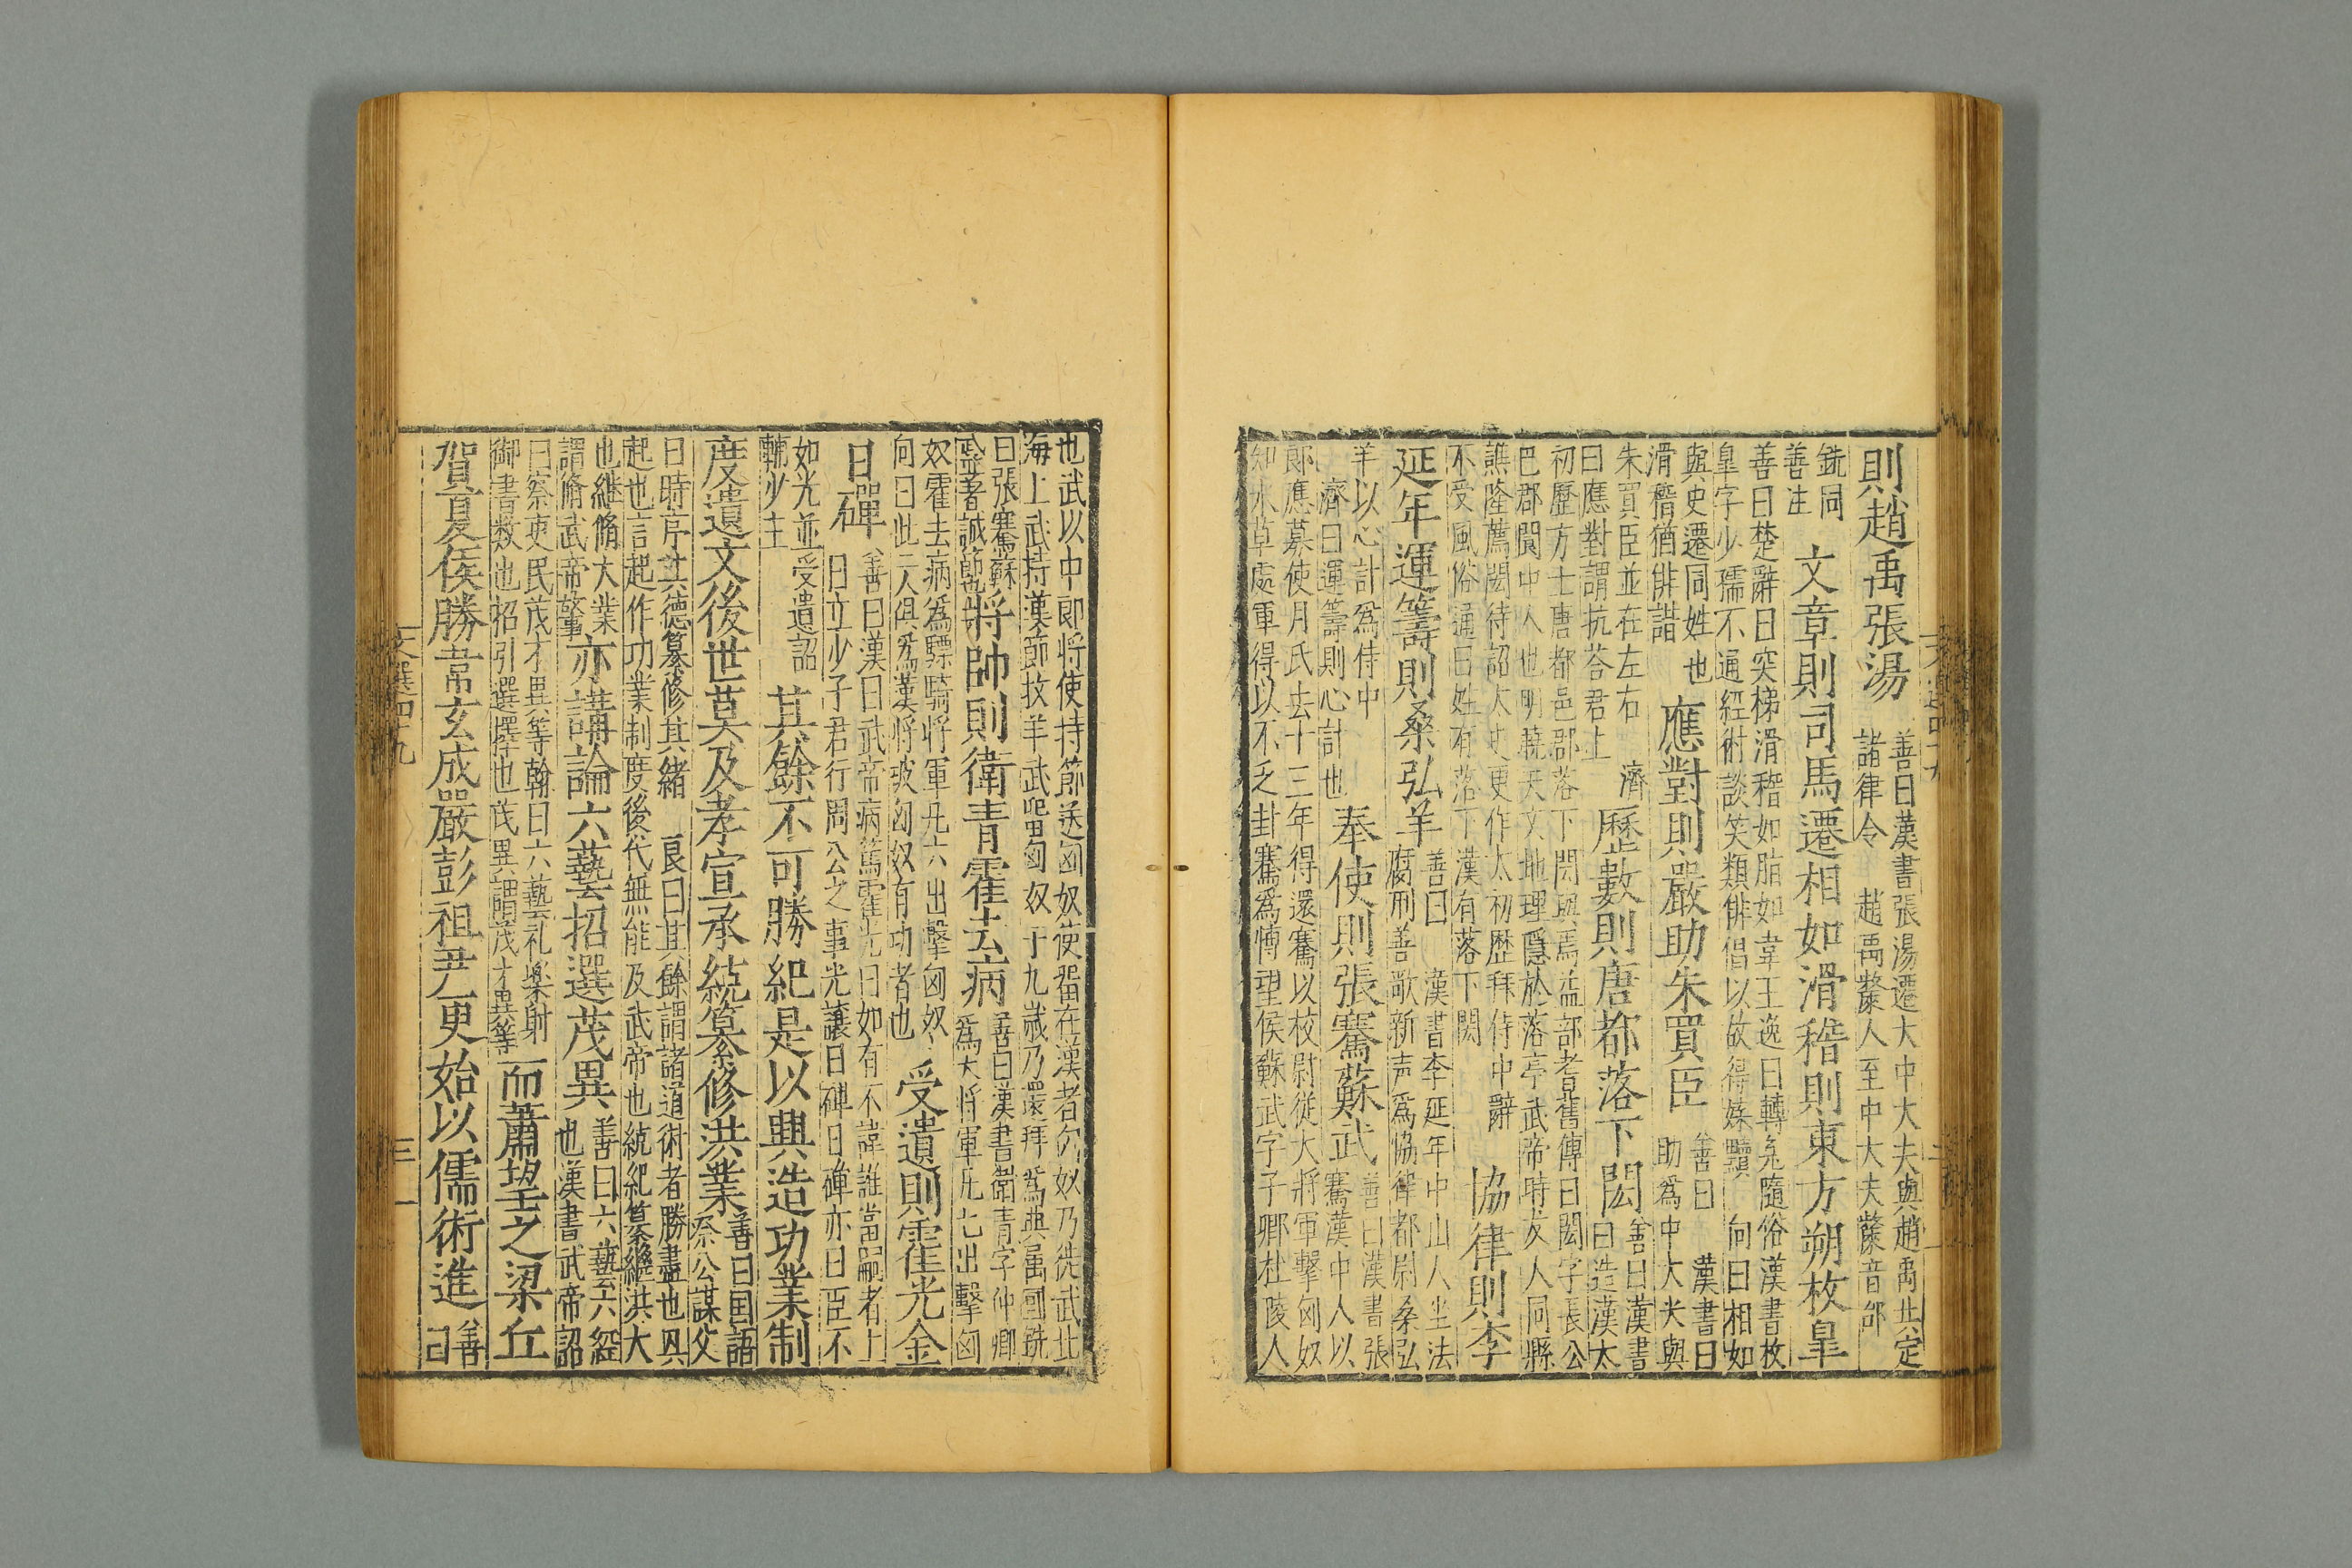 則趙禹張湯善曰漢書張湯遷大中大夫與趙禹共定諸律令 趙禹斄人至中大夫斄音邰
銑同善注文章則司馬遷相如滑稽則東方朔枚皐
善曰楚辭曰突梯滑稽如脂如韋王逸曰轉㒵隨俗漢書枚
皐字少孺不通經術談笑類俳倡以故得媟黷 向曰相如
與史遷同姓也滑稽猶俳諧應對則嚴助朱買臣善曰 漢書曰助爲中大夫與
朱買臣並在左右 濟曰應對謂抗荅君上歷數則唐都落下閎善曰漢書曰造漢太
初歷方士唐都邑郡落下閎與焉益部耆舊傳曰閎字長公
巴郡閬中人也明曉天文地理隱於落亭武帝時友人同縣
譙隆薦閎待詔太史更作太初歷拜侍中辭
不受風俗通曰姓有落下漢有落下閎協律則李
延年運籌則桑弘羊善曰 漢書李延年中山人坐法腐刑善歌新声爲協律都尉桑弘
羊以心計爲侍中濟曰運籌則心計也奉使則張騫蘇武善曰漢書張騫漢中人以
郎應募使月氏去十三年得還騫以校尉從大將軍擊匈奴
知水草處軍得以不乏封騫爲博望侯蘇武字子卿杜陵人
也武以中郎將使持節送匈奴使留在漢者匈奴乃徙武北
海上武持漢節牧羊武留匈奴十九歲乃還拜爲典属國銑
曰張騫蘇武並著誠節也將帥則衛青霍去病善曰漢書衛青字仲卿爲大將軍凡七出擊匈
奴霍去病爲驃騎將軍凡六出擊匈奴
向曰此二人俱爲漢將破匈奴有功者也受遺則霍光金
日磾善曰漢曰武帝病篤霍光曰如有不諱誰當嗣者上曰立少子君行周公之事光讓日磾日磾亦曰臣不
如光並受遺詔輔少主其餘不可勝紀是以興造功業制
度遺文後世莫及孝宣承統纂修洪業善曰国語祭公謀父
曰時序其德纂修其緒 良曰其餘謂諸道術者勝盡也興
起也言起作功業制度後代無能及武帝也統紀纂繼洪大
也継脩大業謂脩武帝業亦講論六藝招選茂異善曰六藝六經也漢書武帝詔
曰察吏民茂才異等翰曰六藝礼樂射
御書数也招引選擇也茂異謂茂才異等而蕭望之梁丘
賀夏侯勝韋玄成嚴彭祖尹更始以儒術進善曰
文選四十九
三